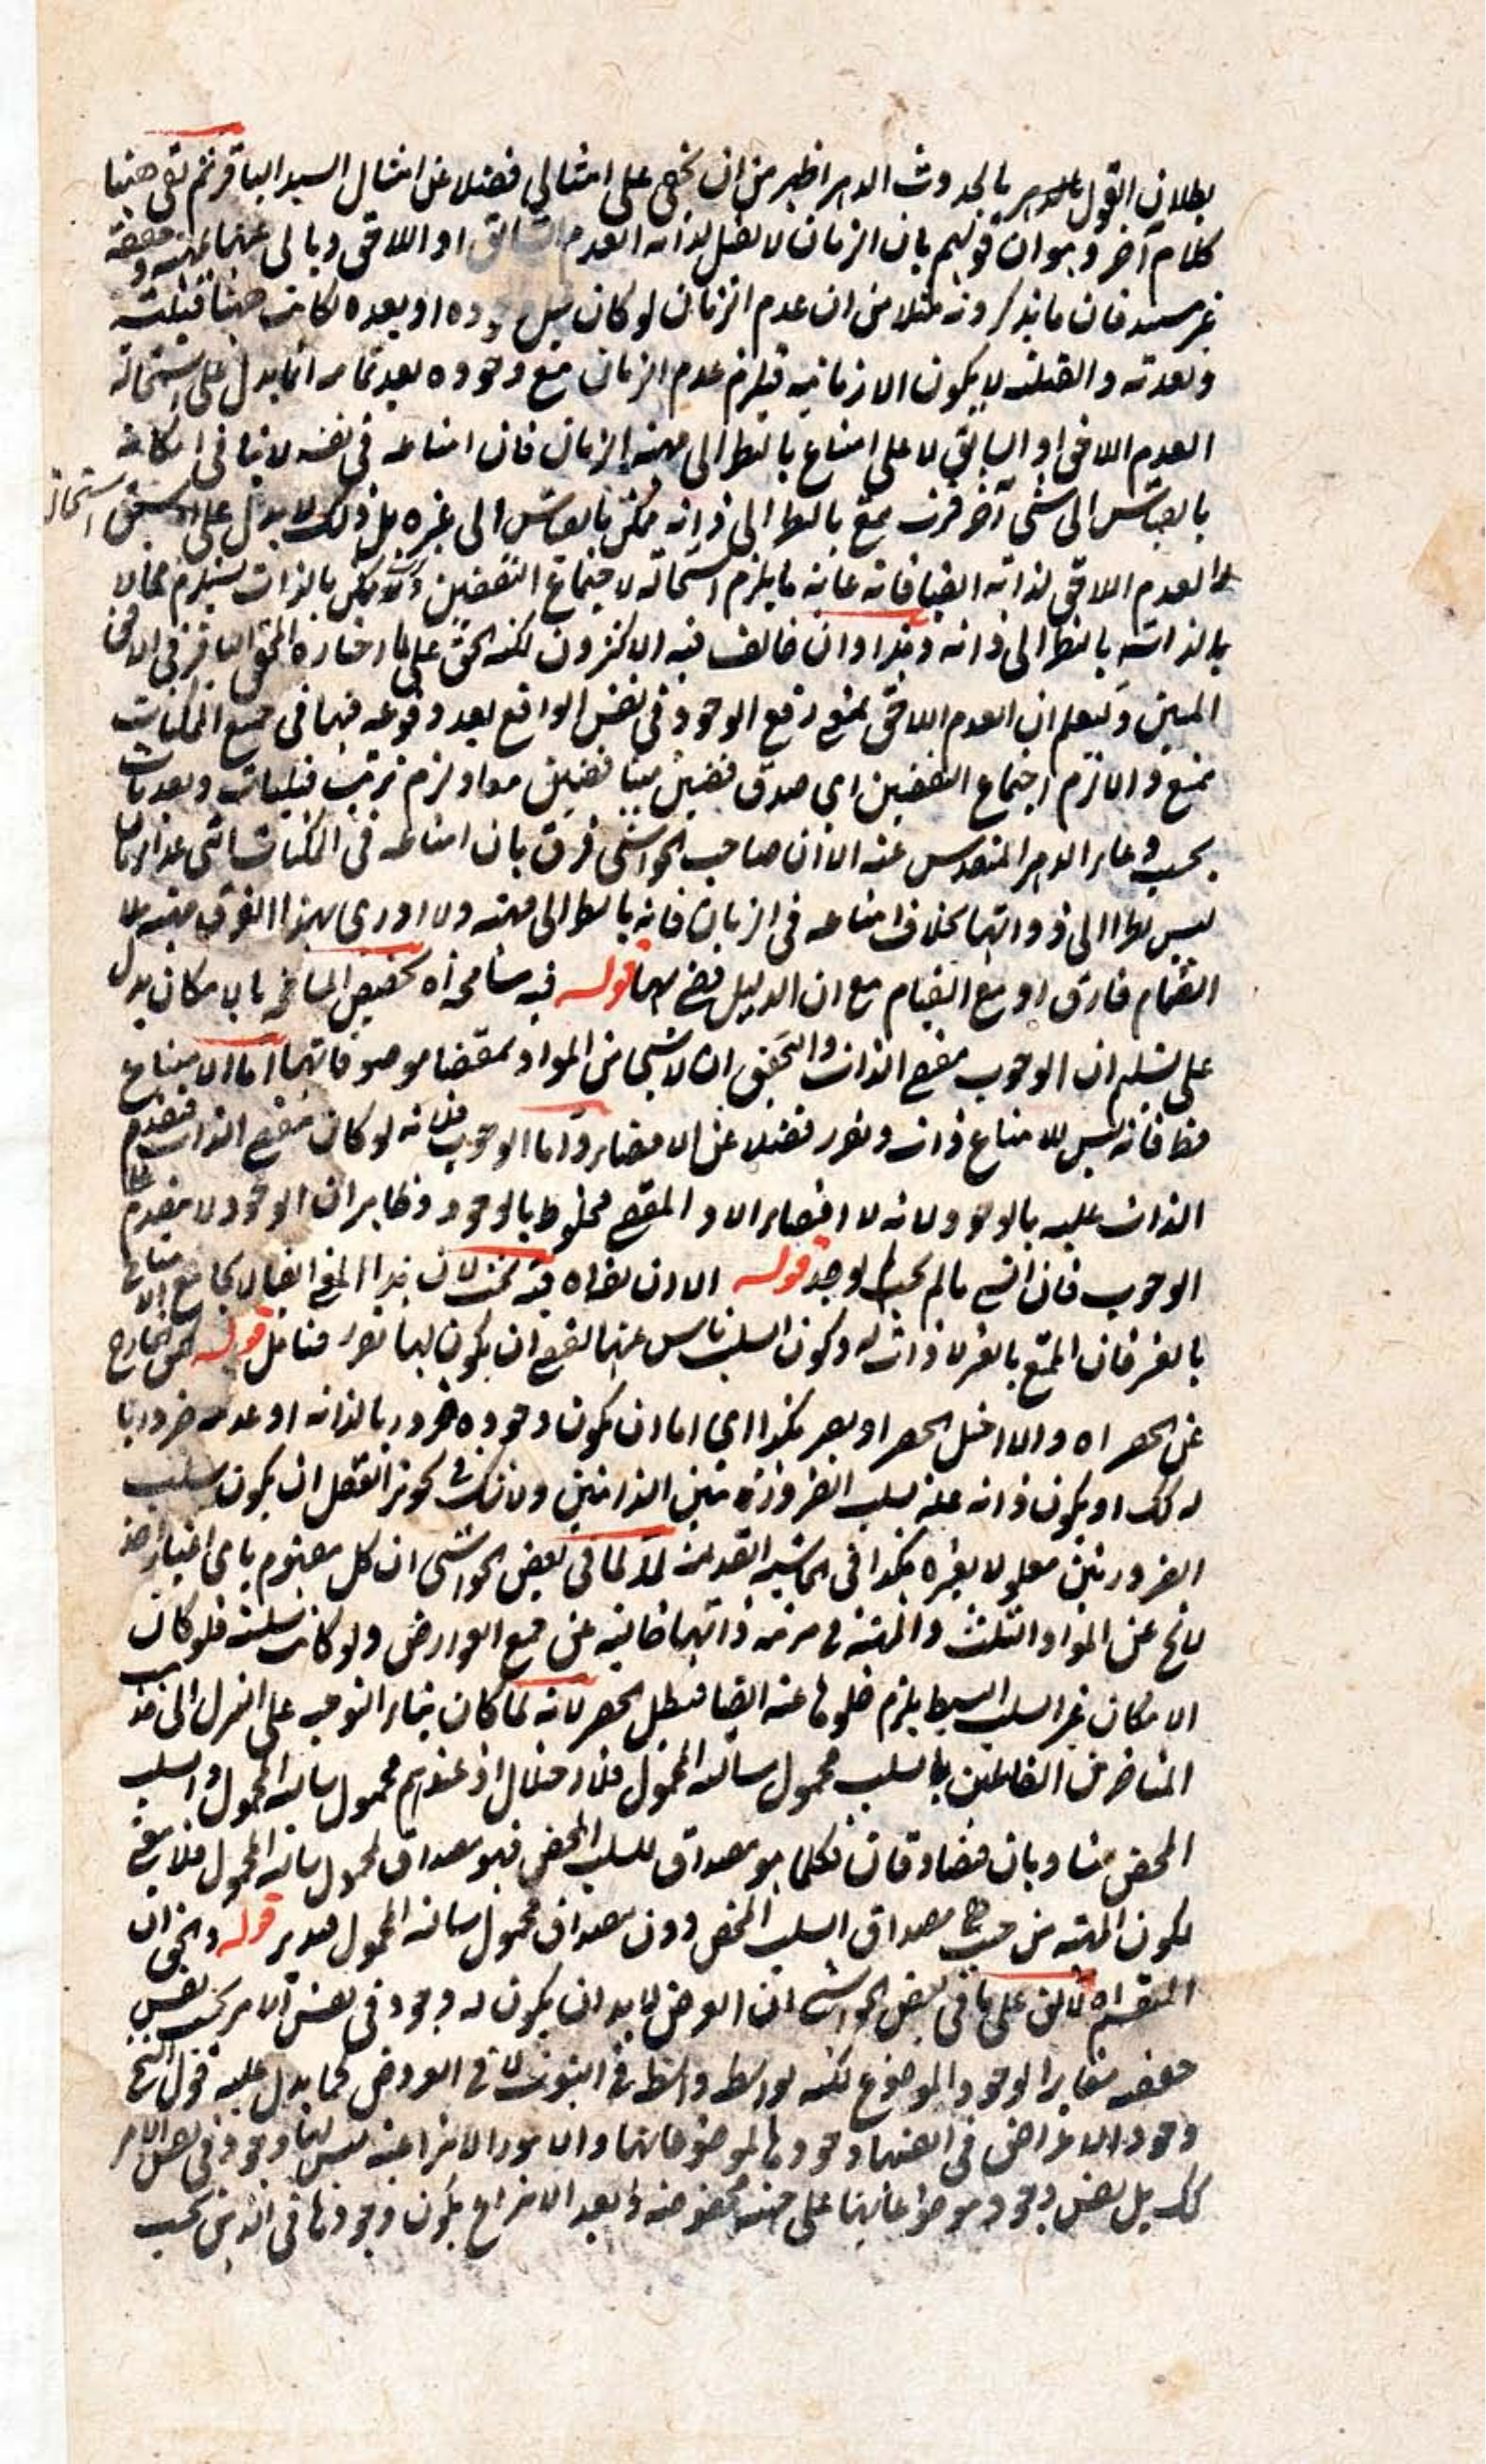 بطلان القول بالحدوث الدهر اظهر من ان يخفى على امثالي فضلا عن امثال السيد الباقر ثم بقى ههنا
كلام آخر وهو ان قولهم بان الزمان لا يقبل لذاته العدم السابق او اللاحق وبالى عنهما مهيته وحقيقته
غير سديد فان ما يذكرونه مثلا من ان عدم الزمان لو كان قبل وجوده او بعده لكانت ههنا قبلية
وبعدية والقبلية لا يكون الا زمانية فيلزم عدم الزمان مع وجوده بعد تمامه انما يدل على استحالة
العدم اللاحق او السابق لا على امتناع بالنظر الى مهية الزمان فان امتناعه في نفسه لا ينافي امكانه
بالقياس الى شيء آخر فرب ممتنع بالنظر الى ذاته ممكن بالقياس الى غيره بل ذلك لا يدل على استحالة
العدم اللاحق لذاته ايضا فانه غاية ما يلزم استحالته لاجتماع النقيضين وكم ممكن بالذات يستلزم محالا
بالذات بالنظر الى ذاته وهذا وان خالف فيه الاكثرون لكنه الحق على ما اختاره المحقق الباقر في الافق
المبين وليعلم ان العدم اللاحق بمعنى رفع الوجود في نفس الواقع بعد وقوعه فيها في جميع الممكنات
ممتنع والا لزم اجتماع النقيضين اى صدق قضيتين متناقضتين معا ولزم ترتب قبليات وبعديات
بحسب وعاء الدهر المتقدس عنه الا ان صاحب الحواشي فرق بان امتناعه في الممكنات التي عدا الزمان
ليس نظرا الى ذواتها بخلاف امتناعه في الزمان فانه بالنظر الى مهيته ولا ادرى بهذا الفرق
انضمام فارق او مع القيام مع ان الدليل فيهما قوله فيه مسامحة اه تخصيص المسامحة بالامكان يدل
على تسليم ان الوجوب مقتضى الذات والتحقيق ان لا شيء من المواد بمقتضا موصوفاتها اما الامتناع
فظ فانه ليس للامتناع ذات وتقرر فضلا عن الاقتضاء واما الوجوب فلانه لو كان مقتضى الذات فتقدم
الذات عليه بالوجود ولانه لا اقتضاء الا و المقتضى مخلوط بالوجود وظاهر ان الوجود لا يتقدم على
الوجوب فان الشيء ما لم يجب لم يوجد قوله الا ان يقال اه فيه بحث لان هذا المعنى ايضا لا يجامع الامتناع
بالغير فان الممتنع بالغير لا ذات له وكون السلب ناش عنها يقتضي ان يكون لها تقرر فتامل قوله الخارج
عن الحصر اه والا اختل الحصر او يصير هكذا اى اما ان يكون وجوده ضروريا لذاته او عدمه ضروريا
له كك او يكون ذاته علة لسلب الضرورتين الذاتيتين ولا شك في تجويز العقل ان يكون سلب
الضرورتين معلولا لغيره هكذا في الحاشية القديمة لا لما في بعض الحواشي ان كل مفهوم باى اعتبار اخذ
لا يخ عن المواد الثلث والمهية في مرتبة ذاتها خالية عن جميع العوارض ولو كانت سلبية فلو كان
الامكان غير السلب البسيط يلزم خلوها عنه ايضا فبطل الحصر لانه لما كان بناء التوجيه على التنزل الى مذ
المتاخرين القائلين بالسلب محمول سالبة المحمول فلا اختلال اذ عندهم محمول سالبة المحمول والسلب
المحض متساويان متصادقان فكلما هو مصداق للسلب المحض فهو مصداق لمحمول سالبة المحمول فلا معنى
لكون المهية من حيث هي مصداق السلب المحض دون مصداق محمول سالبة المحمول فتدبر قوله والحق ان
المتقرر اه لا لان على ما في بعض الحواشي ان العرض لا بد ان يكون له وجود في نفس الامر بحسب نفس
حقيقته مغايرا لوجود الموضوع لكنه بواسطة واسطة في الثبوت لا في العروض كما يدل عليه قول الشيخ
وجود الاعراض في انفسها وجودها لموضوعاتها والامور الانتزاعية ليس لها وجود في نفس الامر
كك بل نفس وجود موضوعاتها على حيثية مخصوصة وبعد الانتزاع يكون وجودها في الذهن بحسب